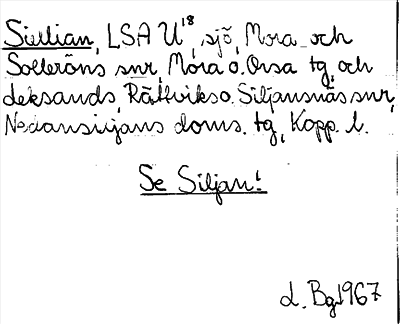 Siellian, LSA U¹⁸, sjö, Mora och
Solleröns snr, Mora o. Orsa tg, och
Leksands, Rättviks o. Siljansnäs snr,
Nedansiljans doms. tg, Kopp. l.
Se Siljan!
L. Bg 1967